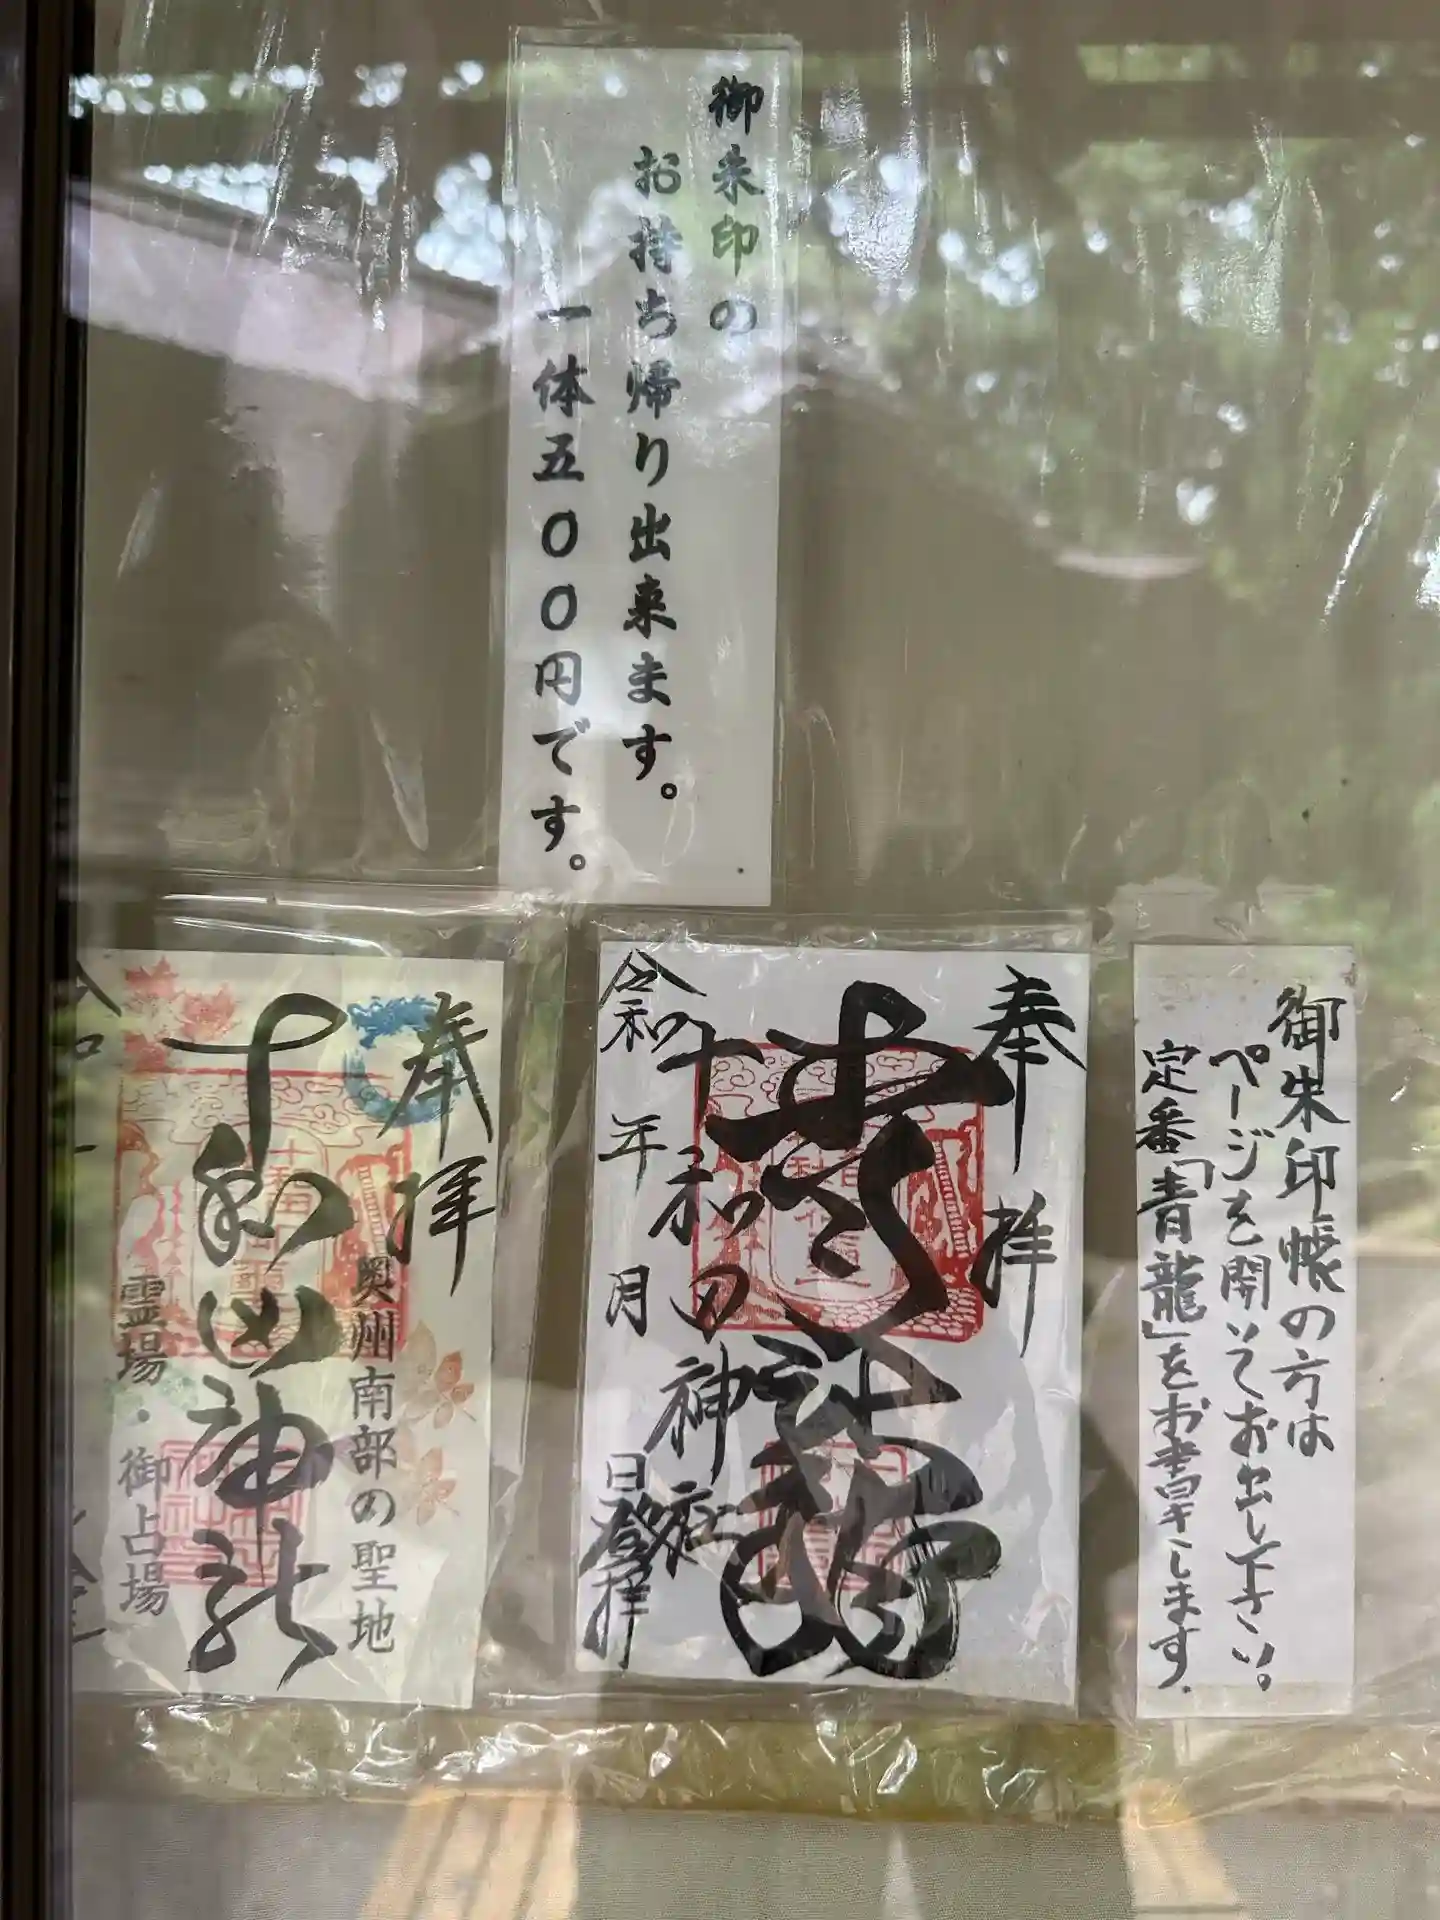 御朱印の
お持ち帰り出来ます。
一体五〇〇円です。
御朱印帳の方は
ページを開いてお出し下さい。
定番「青龍」をお書きします。
奉拝
青龍
十和田神社
令和 年 月 日登拝
奉拝
奥州南部の聖地
十和田神社
霊場・御占場